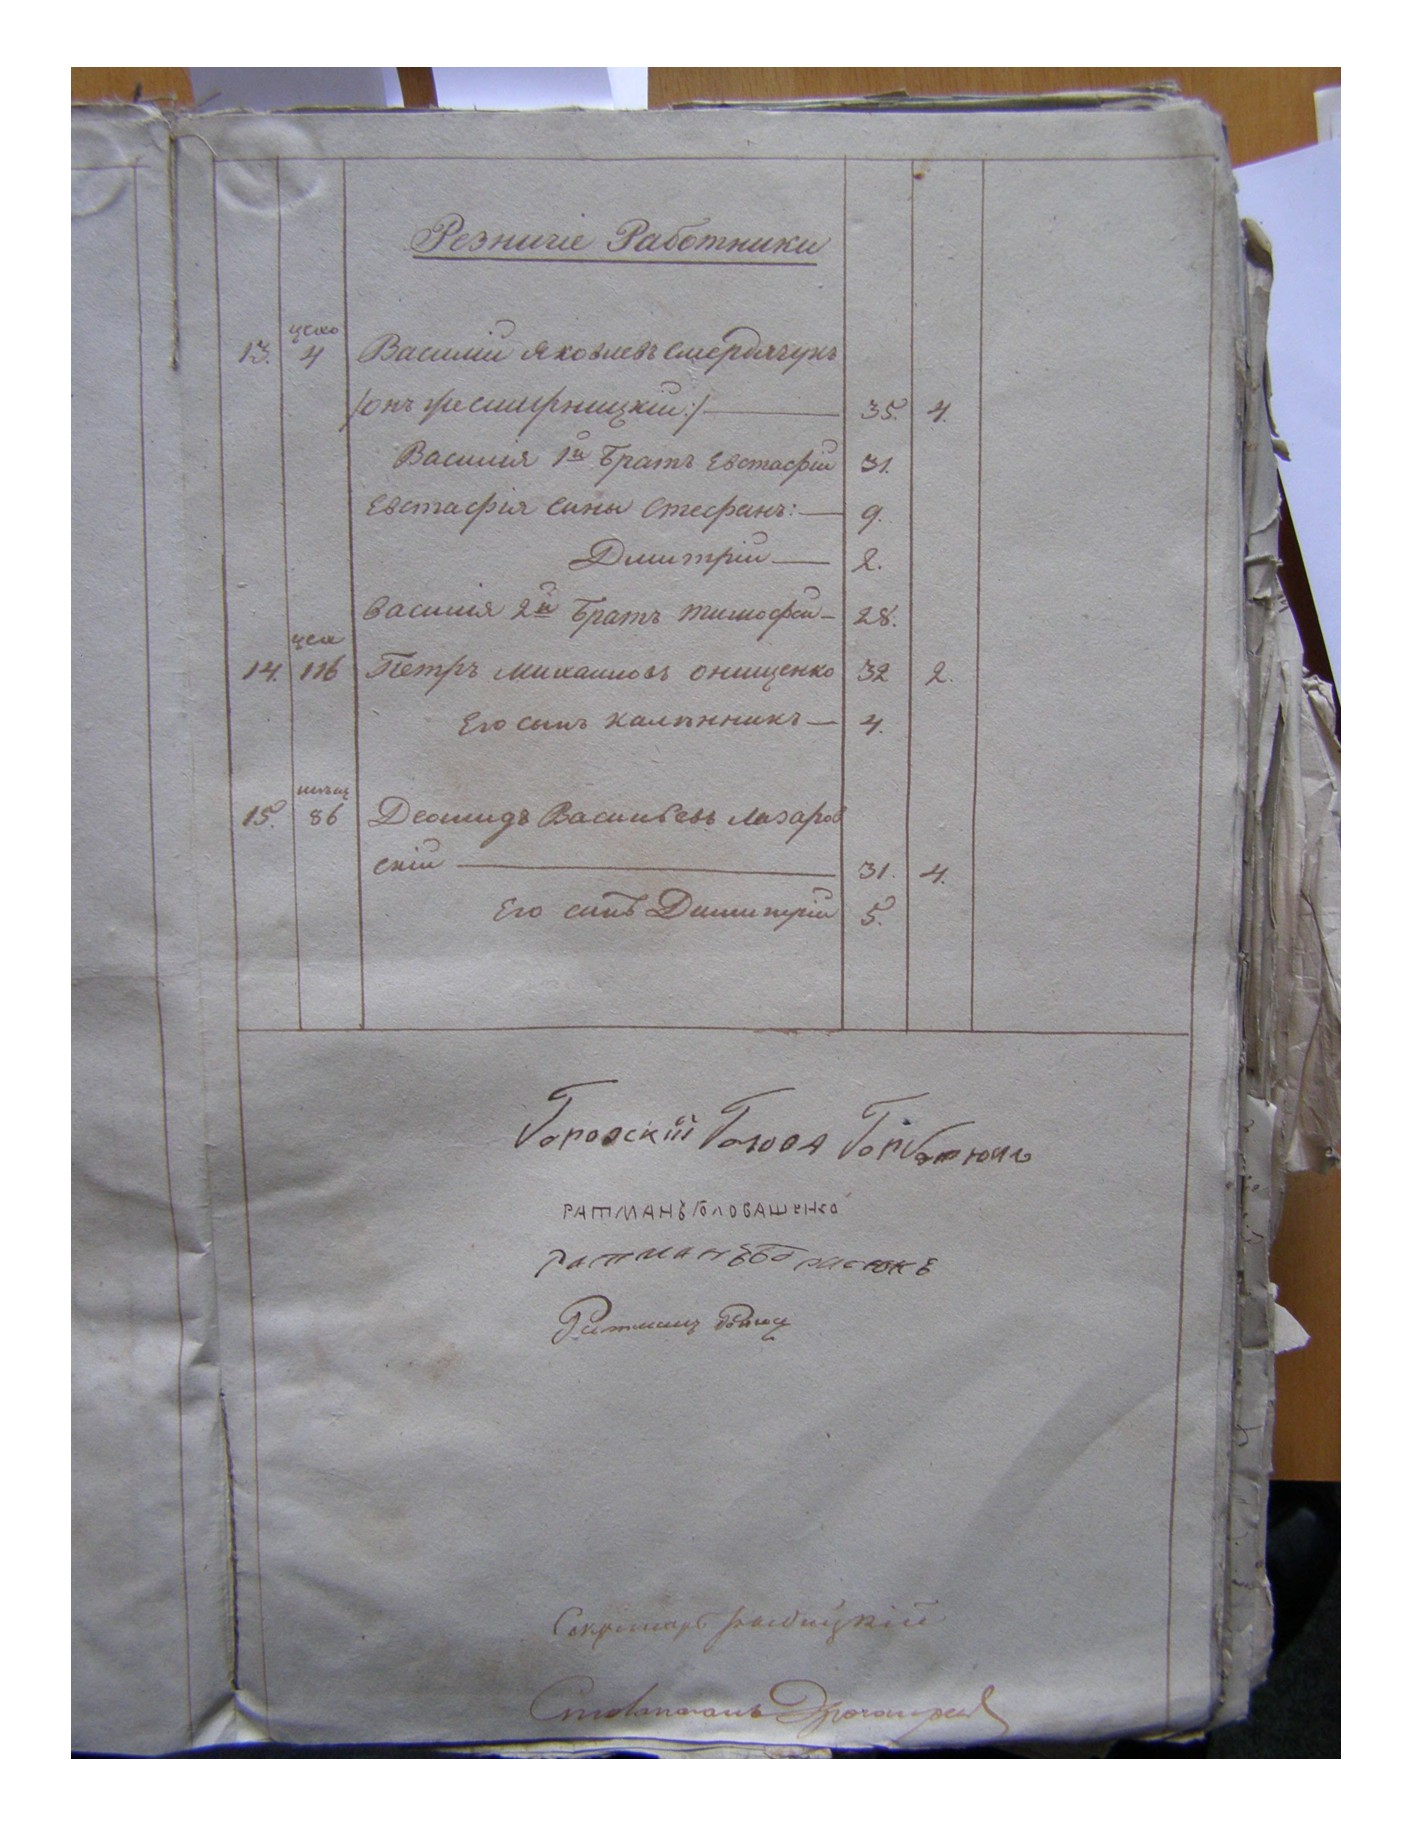 Резничіе Работники
цехо
13. 4 Василій Яковлевъ Смердячукъ
/: онъ же Смирницкій :/ 35. 4.
Василія 1й Братъ Евстафій 31.
Евстафія сины Стефанъ: 9.
Дмитрій 2.
Василія 2й Братъ Тимофей 28.
цех
14. 116 Петръ Михаиловъ Онищенко 32 2.
Его сынъ Калѣнникъ 4.
15. 86 Деомидъ Васильевъ Лазаров
скій 31. 4.
Его синъ Димитрій 5.
Городскій Голова
РАТМАНЪ ГОЛОВАШЕНКО
РАТМАНЪ БОРИСЮКЪ
Ратманъ
Секретарь